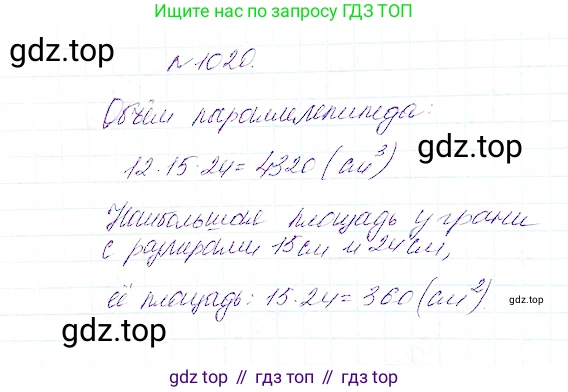 Ищите нас по запросу ГДЗ ТОП
gdz.top
№1020.
Объём параллелепипеда:
12·15·24=4320 (см³)
gdz.top
Наибольшая площадь у грани
с размерами 15см и 24см,
её площадь: 15·24=360 (см²)
gdz.top
gdz.top
gdz.top // гдз топ // gdz top